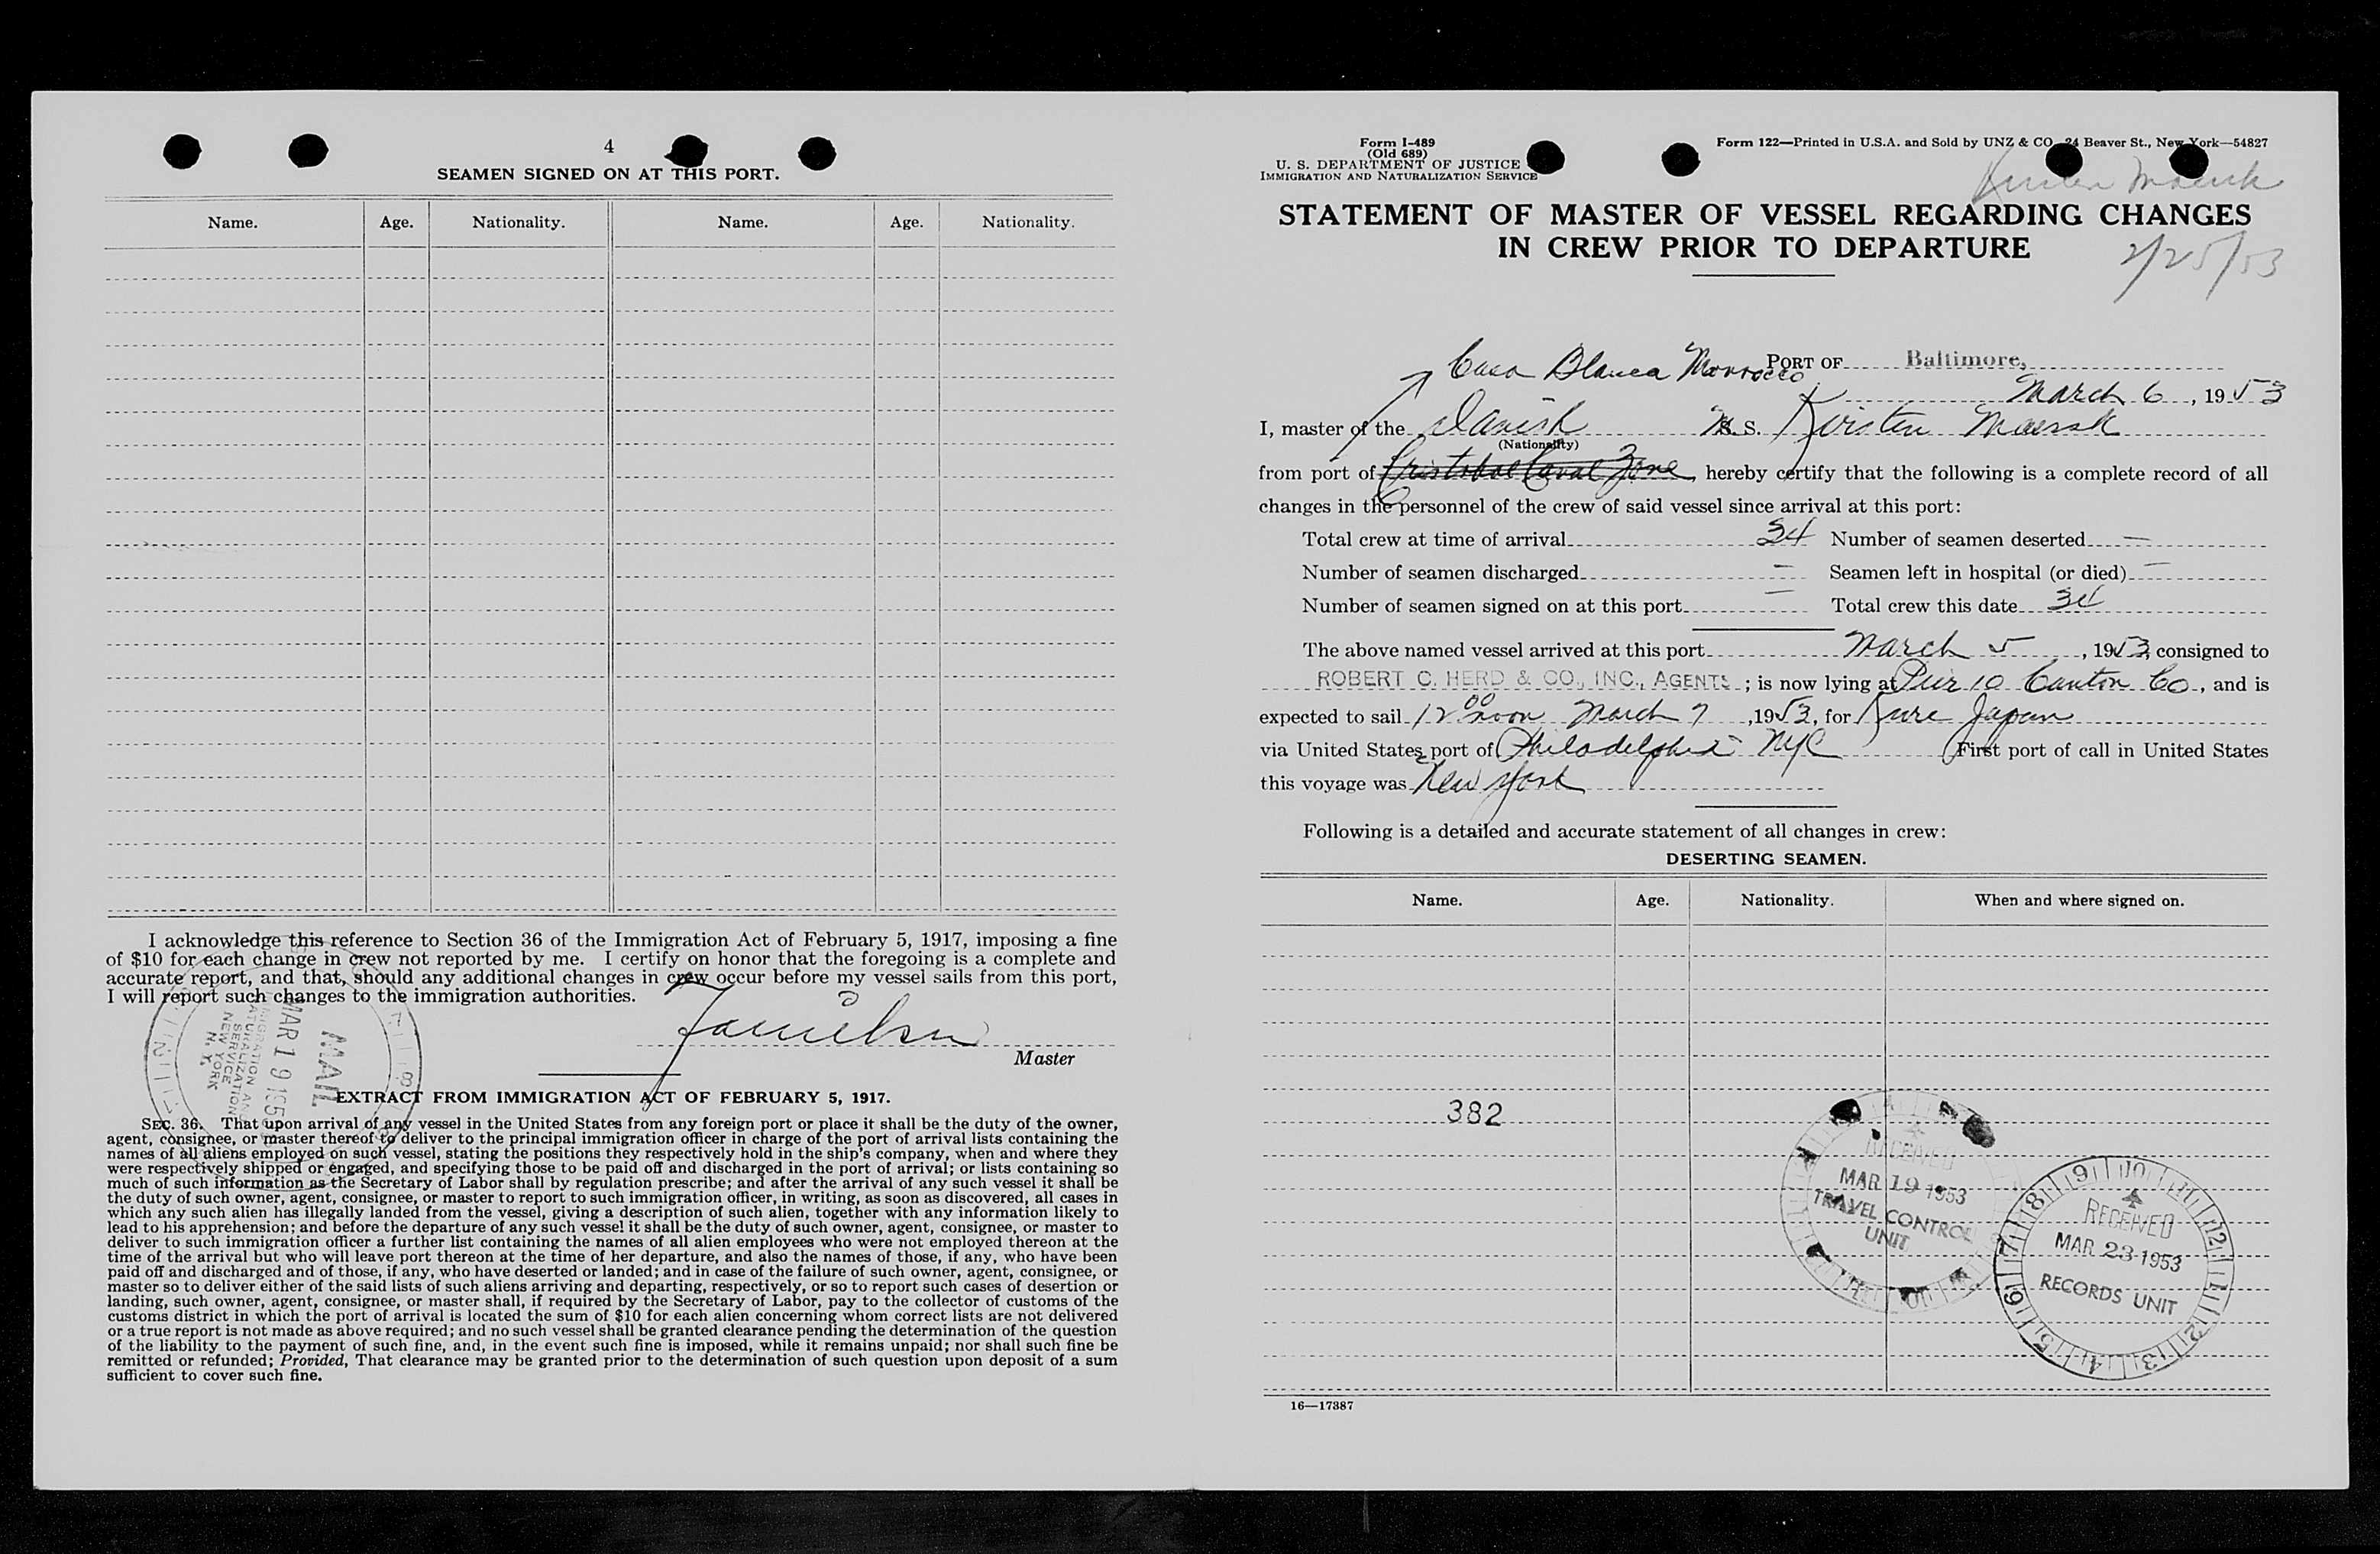 4
SEAMEN SIGNED ON AT THIS PORT.
Name. Age. Nationality. Name. Age. Nationality.
I acknowledge this reference to Section 36 of the Immigration Act of February 5, 1917, imposing a fine
of $10 for each change in crew not reported by me. I certify on honor that the foregoing is a complete and
accurate report, and that, should any additional changes in crew occur before my vessel sails from this port,
I will report such changes to the immigration authorities.
Master
MAIL
MAR 19 1953
IMMIGRATION AND
NATURALIZATION
SERVICE
NEW YORK
N. Y.
EXTRACT FROM IMMIGRATION ACT OF FEBRUARY 5, 1917.
SEC. 36. That upon arrival of any vessel in the United States from any foreign port or place it shall be the duty of the owner,
agent, consignee, or master thereof to deliver to the principal immigration officer in charge of the port of arrival lists containing the
names of all aliens employed on such vessel, stating the positions they respectively hold in the ship's company, when and where they
were respectively shipped or engaged, and specifying those to be paid off and discharged in the port of arrival; or lists containing so
much of such information as the Secretary of Labor shall by regulation prescribe; and after the arrival of any such vessel it shall be
the duty of such owner, agent, consignee, or master to report to such immigration officer, in writing, as soon as discovered, all cases in
which any such alien has illegally landed from the vessel, giving a description of such alien, together with any information likely to
lead to his apprehension; and before the departure of any such vessel it shall be the duty of such owner, agent, consignee, or master to
deliver to such immigration officer a further list containing the names of all alien employees who were not employed thereon at the
time of the arrival but who will leave port thereon at the time of her departure, and also the names of those, if any, who have been
paid off and discharged and of those, if any, who have deserted or landed; and in case of the failure of such owner, agent, consignee, or
master so to deliver either of the said lists of such aliens arriving and departing, respectively, or so to report such cases of desertion or
landing, such owner, agent, consignee, or master shall, if required by the Secretary of Labor, pay to the collector of customs of the
customs district in which the port of arrival is located the sum of $10 for each alien concerning whom correct lists are not delivered
or a true report is not made as above required; and no such vessel shall be granted clearance pending the determination of the question
of the liability to the payment of such fine, and, in the event such fine is imposed, while it remains unpaid; nor shall such fine be
remitted or refunded; Provided, That clearance may be granted prior to the determination of such question upon deposit of a sum
sufficient to cover such fine.
Form I-489
(Old 689)
U. S. DEPARTMENT OF JUSTICE
IMMIGRATION AND NATURALIZATION SERVICE
Form 122—Printed in U.S.A. and Sold by UNZ & CO 24 Beaver St., New York—54827
Kirsten Maersk
STATEMENT OF MASTER OF VESSEL REGARDING CHANGES
IN CREW PRIOR TO DEPARTURE
2/25/53
PORT OF Baltimore,
Casa Blanca Morrocco
March 6, 1953
I, master of the Danish M. S. Kirsten Maersk
(Nationality)
from port of Cristobal Canal Zone hereby certify that the following is a complete record of all
changes in the personnel of the crew of said vessel since arrival at this port:
Total crew at time of arrival 34 Number of seamen deserted —
Number of seamen discharged — Seamen left in hospital (or died) —
Number of seamen signed on at this port — Total crew this date 34
The above named vessel arrived at this port March 5, 1953, consigned to
ROBERT C. HERD & CO., INC., AGENTS; is now lying at Pier 10 Canton Co, and is
expected to sail 12 00 noon March 7, 1953, for Kure Japan
via United States port of Philadelphia - NYC First port of call in United States
this voyage was New York
Following is a detailed and accurate statement of all changes in crew:
DESERTING SEAMEN.
Name. Age. Nationality. When and where signed on.
382
RECEIVED
MAR 19 1953
TRAVEL CONTROL
UNIT
RECEIVED
MAR 23 1953
RECORDS UNIT
16—17387